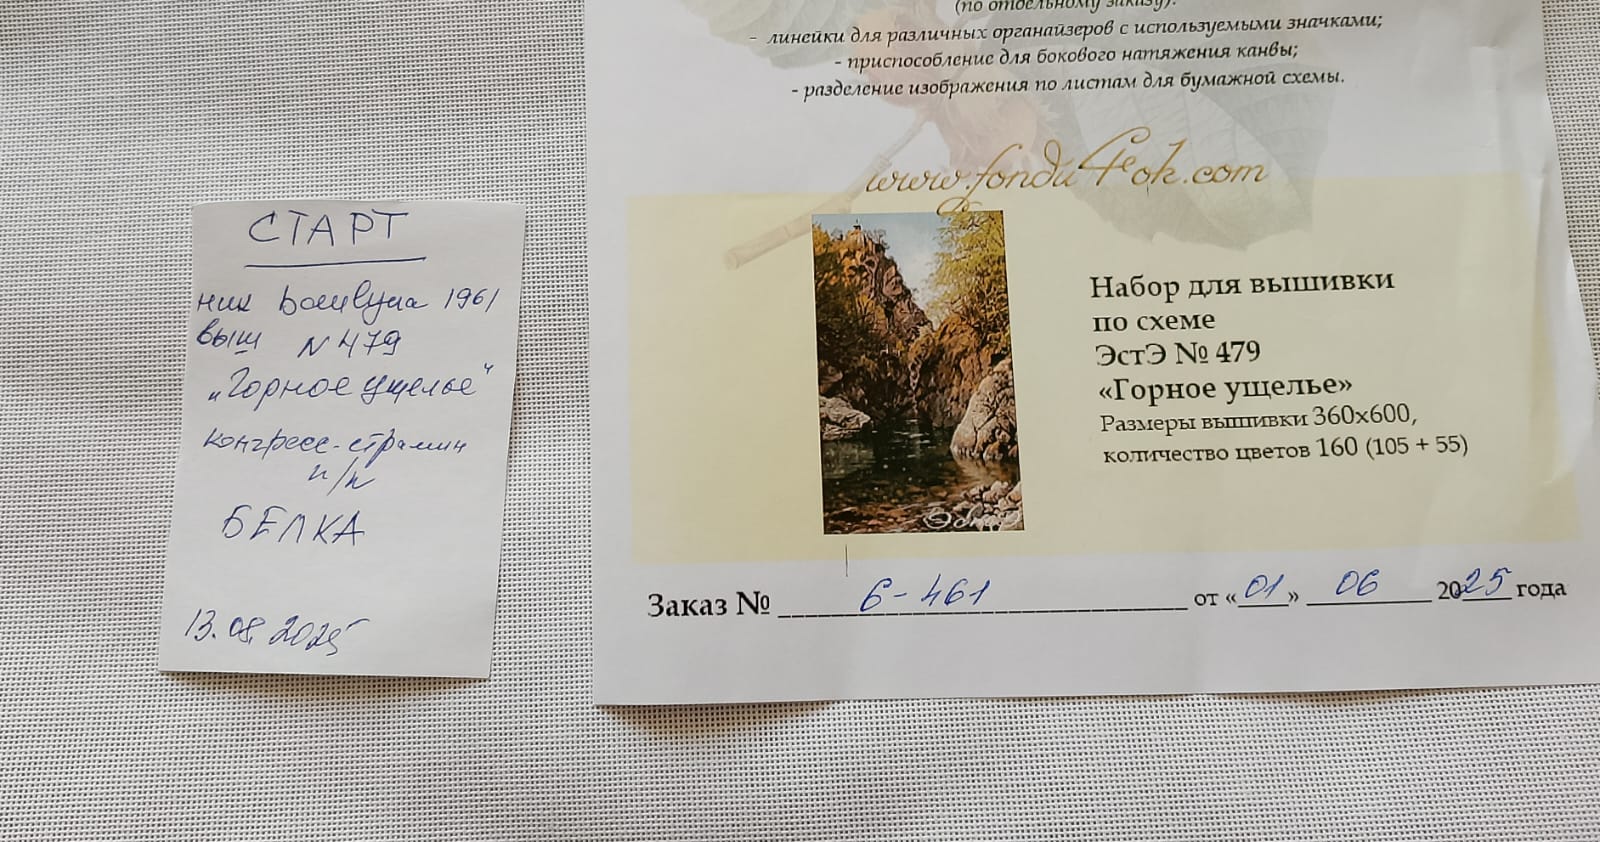 СТАРТ
ник
1961
выш N 479
„Горное ущелье"
конгресс-страмин
п/к
БЕЛКА
13.08.2025
(по отдельному заказу).
- линейки для различных органайзеров с используемыми значками;
- приспособление для бокового натяжения канвы;
- разделение изображения по листам для бумажной схемы.
www.fondu4ok.com
ЭстЭ
Набор для вышивки
по схеме
ЭстЭ № 479
«Горное ущелье»
Размеры вышивки 360х600,
количество цветов 160 (105 + 55)
Заказ № 6-461 от «01» 06 2025 года